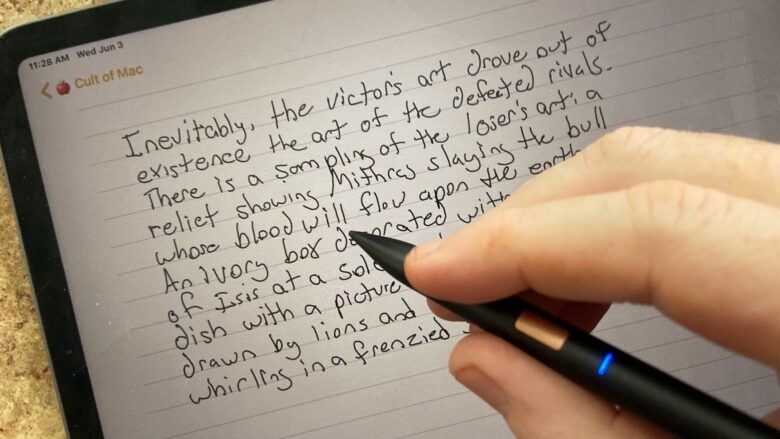 11:28 AM Wed Jun 3
Cult of Mac
Inevitably, the victor's art drove out of
existence the art of the defeted rivals.
There is a sampling of the loser's art: a
relief showing Mithras slaying the bull
whose blood will flow apon the earth
An ivory box decorated with
of Isis at a
dish with a picture
drawn by lions and
whirling in a frenzied